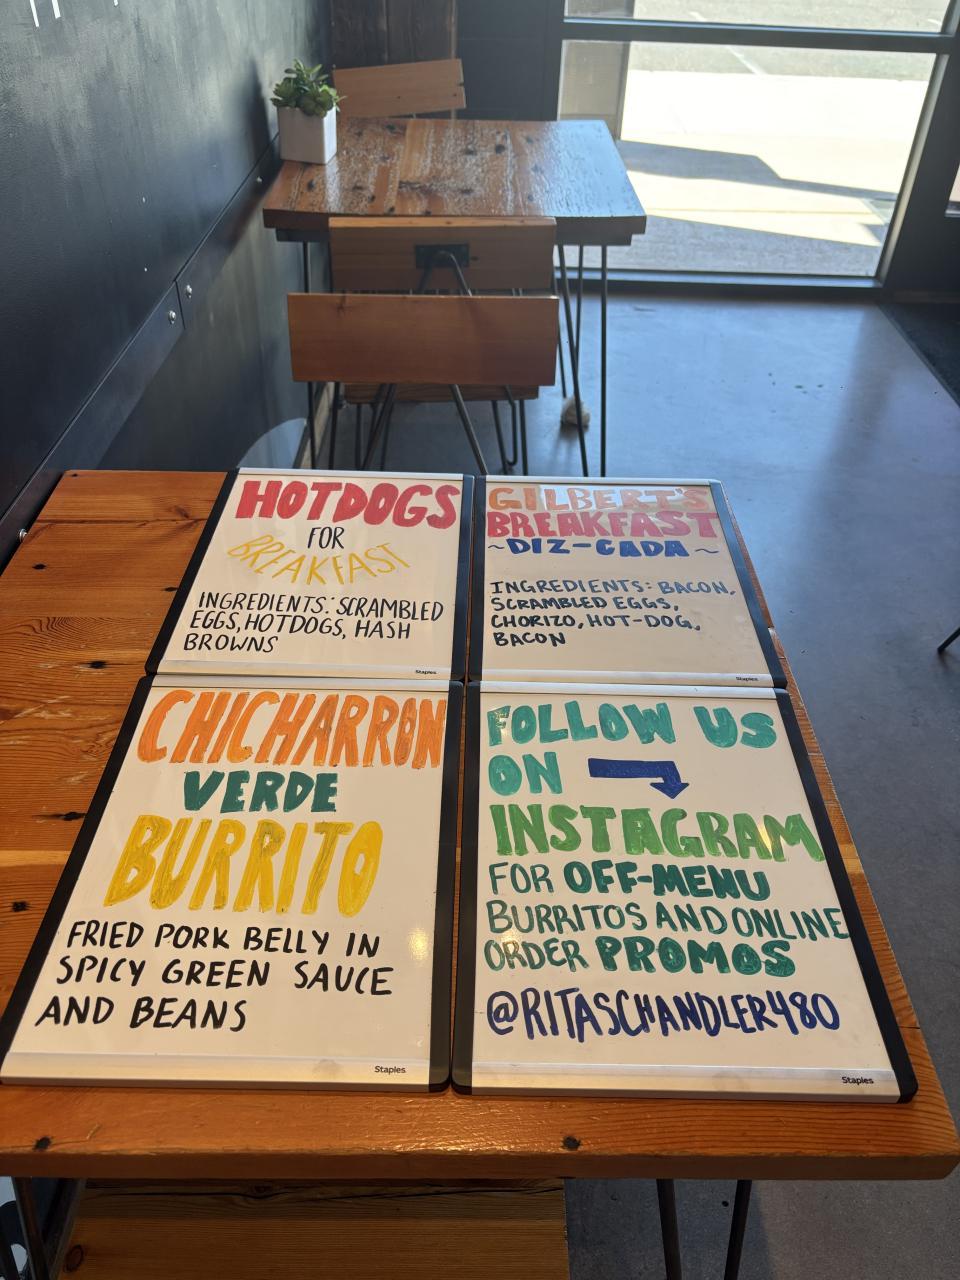 HOTDOGS
FOR
BREAKFAST
INGREDIENTS: SCRAMBLED
EGGS, HOTDOGS, HASH
BROWNS
Staples
GILBERT'S
BREAKFAST
~DIZ-CADA~
INGREDIENTS: BACON,
SCRAMBLED EGGS,
CHORIZO, HOT-DOG,
BACON
Staples
CHICHARRON
VERDE
BURRITO
FRIED PORK BELLY IN
SPICY GREEN SAUCE
AND BEANS
Staples
FOLLOW US
ON
INSTAGRAM
FOR OFF-MENU
BURRITOS AND ONLINE
ORDER PROMOS
@RITASCHANDLER480
Staples